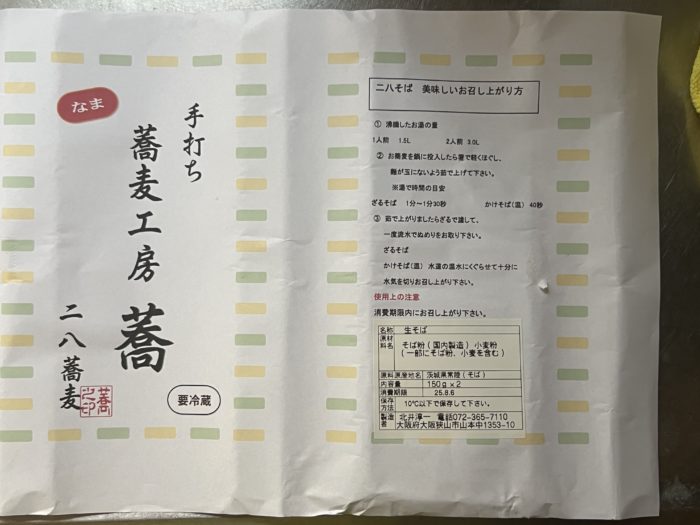 なま
手打ち
蕎麦工房
蕎
二八蕎麦
蕎之印
要冷蔵
二八そば 美味しいお召し上がり方
① 沸騰したお湯の量
1人前 1.5L 2人前 3.0L
② お蕎麦を鍋に投入したら箸で軽くほぐし、
麺が玉にないよう茹で上げて下さい。
※湯で時間の目安
ざるそば 1分〜1分30秒 かけそば(温) 40秒
③ 茹で上がりましたらざるで漉して、
一度流水でぬめりをお取り下さい。
ざるそば
かけそば(温) 水道の温水にくぐらせて十分に
水気を切りお召し上がり下さい。
使用上の注意
消費期限内にお召し上がり下さい。
名称 生そば
原材料名 そば粉(国内製造) 小麦粉
(一部にそば粉、小麦を含む)
原料原産地名 茨城県常陸(そば)
内容量 150g×2
消費期限 25.8.6
保存方法 10℃以下で保存して下さい。
製造者 北井淳一 電話072-365-7110
大阪府大阪狭山市山本中1353-10